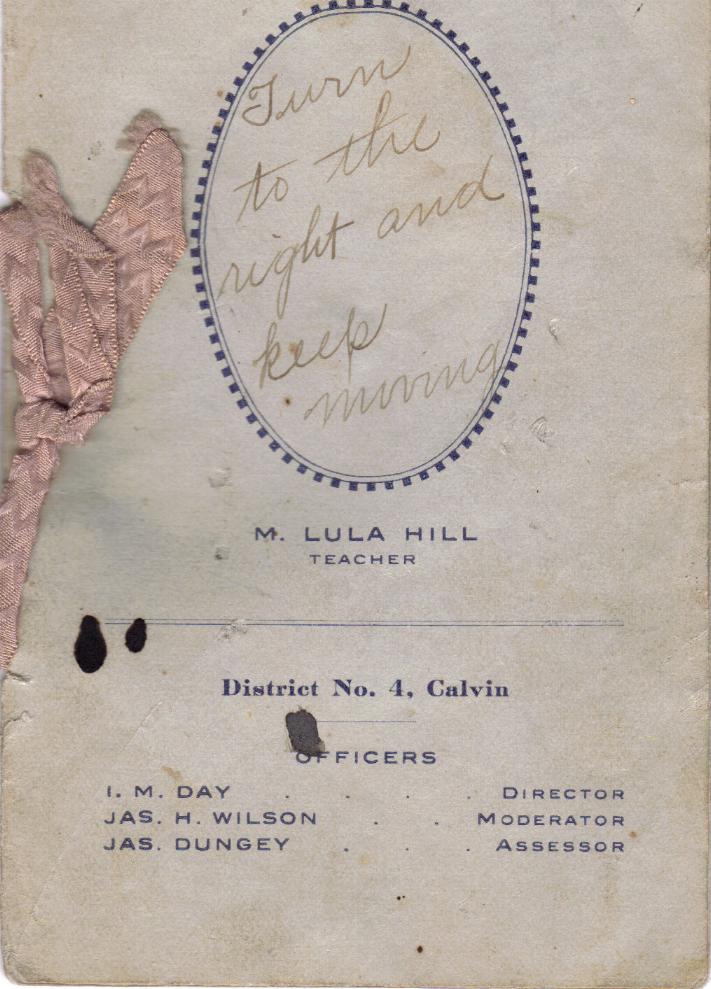 Turn
to the
right and
keep
moving
M. LULA HILL
TEACHER
District No. 4, Calvin
OFFICERS
I. M. DAY . . . . DIRECTOR
JAS. H. WILSON . . MODERATOR
JAS. DUNGEY . . . ASSESSOR